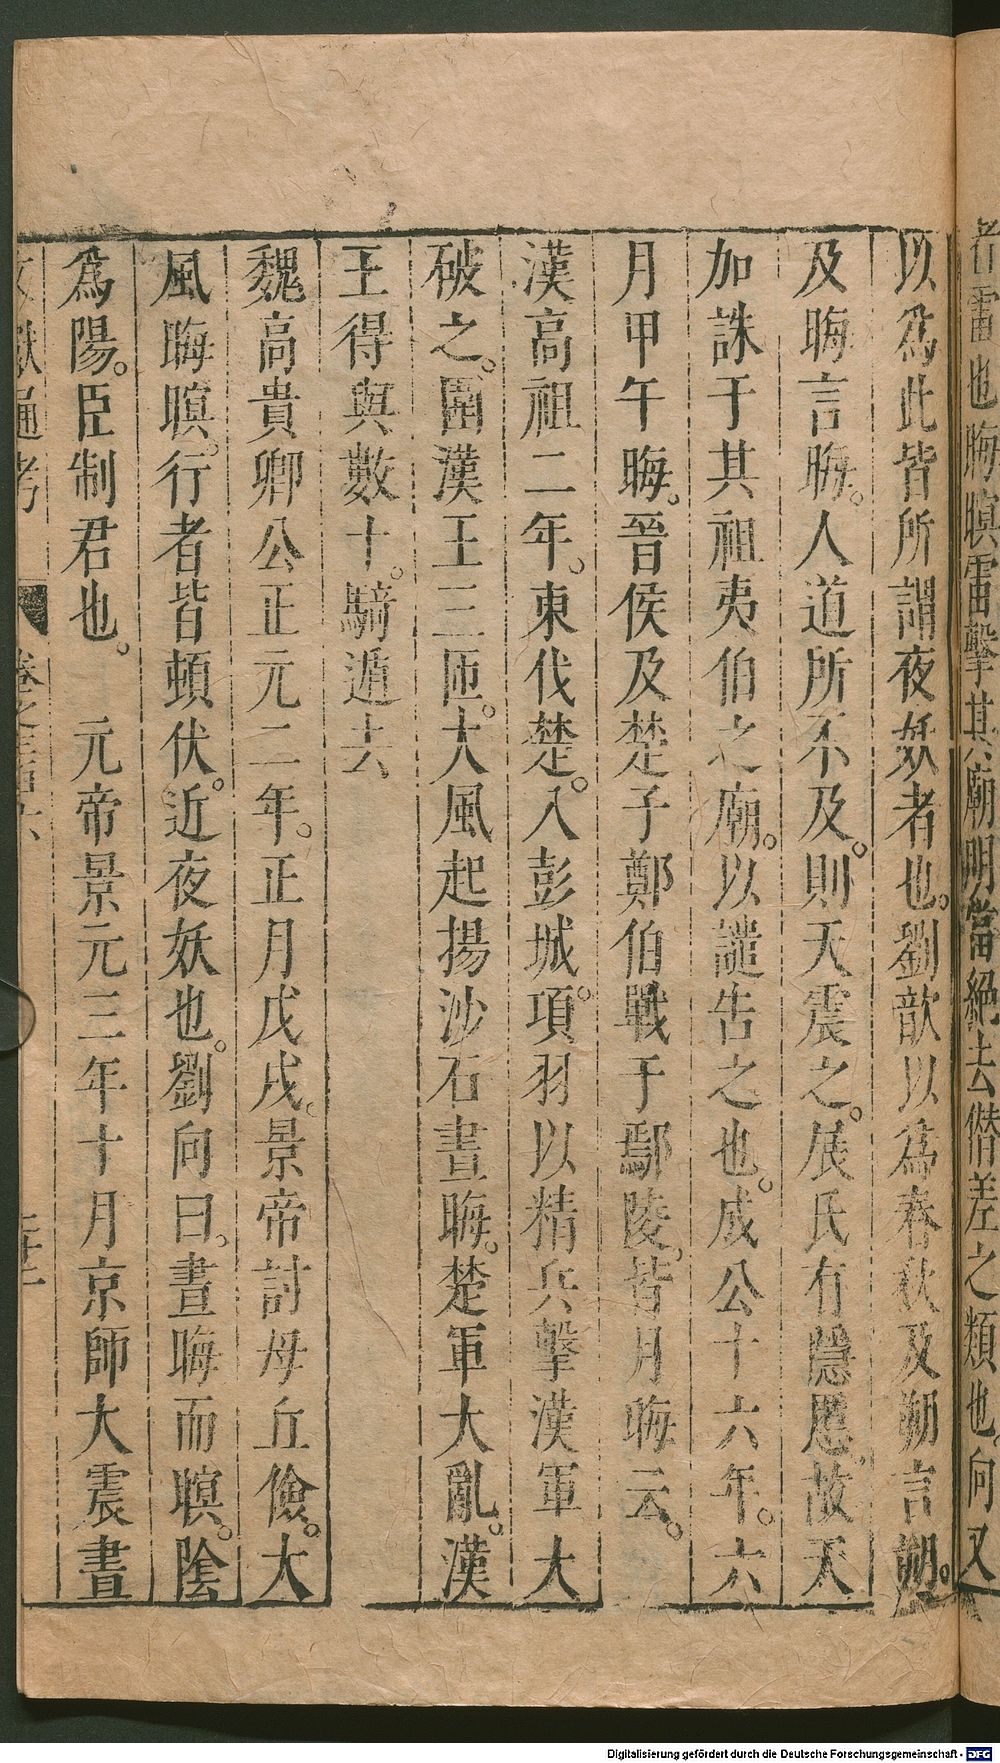 者雷也晦暝雷擊其廟明當絕去僭差之類也向又
以爲此皆所謂夜妖者也。劉歆以爲春秋及朔言朔。
及晦言晦。人道所不及。則天震之。展氏有隱慝。故天
加誅于其祖夷伯之廟。以譴告之也。成公十六年。六
月甲午晦。晉侯及楚子鄭伯戰于鄢陵。皆月晦云。
漢高祖二年。東伐楚。入彭城。項羽以精兵擊漢軍大
破之。圍漢王三匝。大風起揚沙石晝晦。楚軍大亂。漢
王得與數十。騎遁去
魏高貴卿公正元二年。正月戊戌。景帝討毋丘儉。大
風晦暝。行者皆頓伏。近夜妖也。劉向曰。晝晦而暝。陰
爲陽。臣制君也。 元帝景元三年十月京師大震晝
文獻通考 卷之三百六
Digitalisierung gefördert durch die Deutsche Forschungsgemeinschaft - DFG